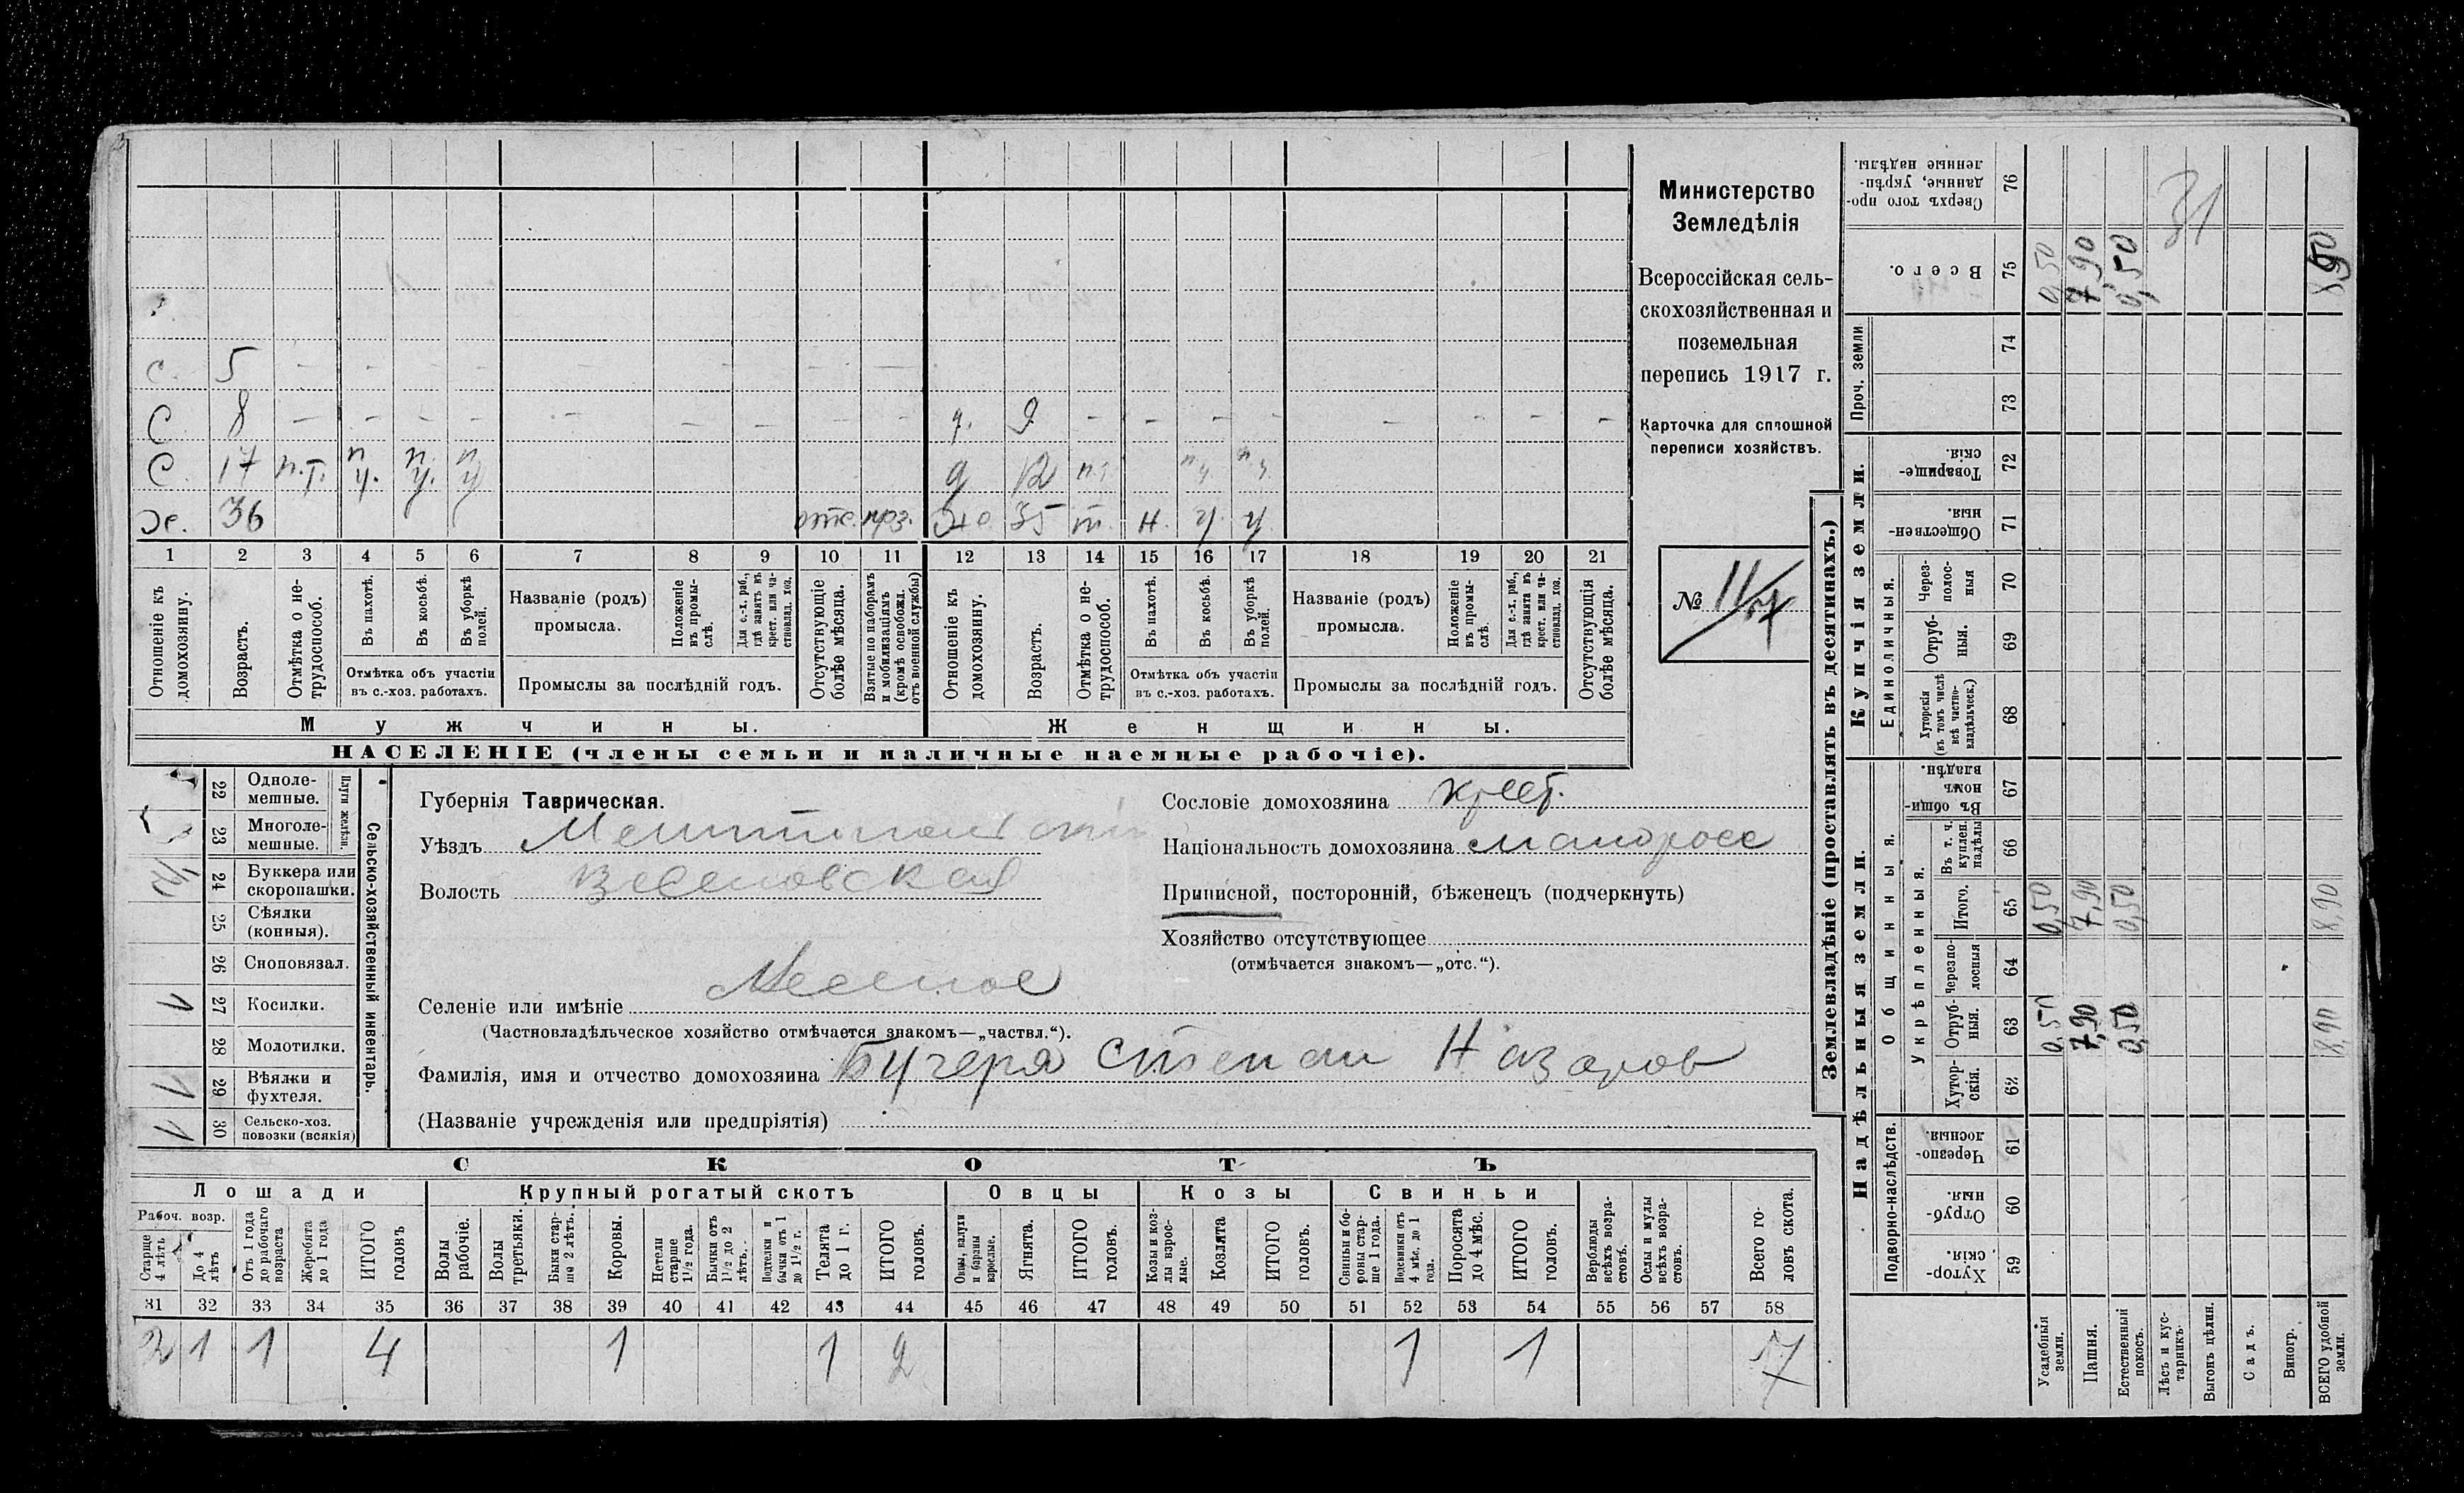 Министерство
Земледѣлія
Всероссійская сель-
скохозяйственная и
поземельная
перепись 1917 г.
Карточка для сплошной
переписи хозяйствъ.
№ 11/
с. 5 - - - - - - - - -
С 8 - - - - - - - - - д. 9 - - - - - - - -
С. 17 п.т. ч. ч. ч. д 12
х. 36 отс. прз. жо 35 т. н. ч. ч.
1 2 3 4 5 6 7 8 9 10 11 12 13 14 15 16 17 18 19 20 21
Отношеніе къ домохозяину.
Возрастъ.
Отмѣтка о не-трудоспособ.
Въ пахотѣ.
Въ косьбѣ.
Въ уборкѣ полей.
Отмѣтка объ участіи въ с.-хоз. работахъ.
Названіе (родъ) промысла.
Положеніе въ промы-слѣ.
Для с.-х. раб., гдѣ занятъ въ крест. или ча-стновлад. хоз.
Промыслы за послѣдній годъ.
Отсутствующіе болѣе мѣсяца.
Взятые по наборамъ и мобилизаціямъ (кромѣ освобожд. отъ военной службы)
Отношеніе къ домохозяину.
Возрастъ.
Отмѣтка о не-трудоспособ.
Въ пахотѣ.
Въ косьбѣ.
Въ уборкѣ полей.
Отмѣтка объ участіи въ с.-хоз. работахъ.
Названіе (родъ) промысла.
Положеніе въ промы-слѣ.
Для с.-х. раб., гдѣ занята въ крест. или ча-стновлад. хоз.
Промыслы за послѣдній годъ.
Отсутствующія болѣе мѣсяца.
Мужчины. Женщины.
НАСЕЛЕНІЕ (члены семьи и наличные наемные рабочіе).
Сельско-хозяйственный инвентарь.
Плуги желѣзн.
22 Одноле-мешные.
23 Многоле-мешные.
24 Буккера или скоропашки.
25 Сѣялки (конныя).
26 Сноповязал.
1 27 Косилки.
28 Молотилки.
1 29 Вѣялки и фухтеля.
1 30 Сельско-хоз. повозки (всякія)
Губернія Таврическая.
Уѣздъ Мелитопольскій
Волость Веселовская
Селеніе или имѣніе Веселое
(Частновладѣльческое хозяйство отмѣчается знакомъ—„частвл.“).
Фамилія, имя и отчество домохозяина Бучеря Степан Назаров
(Названіе учрежденія или предпріятія)
Сословіе домохозяина крест.
Національность домохозяина малоросс
Приписной, посторонній, бѣженецъ (подчеркнуть)
Хозяйство отсутствующее
(отмѣчается знакомъ—„отс.“).
СКОТЪ
Лошади Крупный рогатый скотъ Овцы Козы Свиньи
Рабоч. возр.
Старше 4 лѣтъ
До 4 лѣтъ
Отъ 1 года до рабочаго возраста
Жеребята до 1 года
ИТОГО головъ
Волы рабочіе.
Волы третьяки.
Быки стар-ше 2 лѣтъ.
Коровы.
Нетели старше 1½ года.
Бычки отъ 1½ до 2 лѣтъ.
Подтелки и бычки отъ 1 до 1½ г.
Телята до 1 г.
ИТОГО головъ.
Овцы, валухи и бараны взрослые.
Ягнята.
ИТОГО головъ.
Козы и коз-лы взрос-лые.
Козлята
ИТОГО головъ.
Свиньи и бо-ровы стар-ше 1 года.
Подсвинки отъ 4 мѣс. до 1 года.
Поросята до 4 мѣс.
ИТОГО головъ.
Верблюды всѣхъ возра-стовъ.
Ослы и мулы всѣхъ возра-стовъ.
Всего го-ловъ скота.
31 32 33 34 35 36 37 38 39 40 41 42 43 44 45 46 47 48 49 50 51 52 53 54 55 56 57 58
2 1 1 4 1 1 2 1 1 7
Землевладѣніе (проставлять въ десятинахъ.)
Надѣльныя земли. Купчія земли. Проч. земли
Подворно-наслѣдств.
Общинныя.
Укрѣпленныя.
Единоличныя.
59 Хутор-скія.
60 Отруб-ныя.
61 Черезпо-лосныя.
62 Хутор-скія.
63 Отруб-ныя. 0,50 7,90 0,50 8,90
64 Черезпо-лосныя
65 Итого. 0,50 7,90 0,50 8,90
66 Въ т. ч. куплен. надѣлы
67 Въ общин-номъ владѣн.
68 Хуторскія (въ томъ числѣ всѣ частно-владѣльческ.)
69 Отруб-ныя.
70 Через-полос-ныя
71 Обществен-ныя
72 Товарище-скія.
73
74
75 Всего. 0,50 7,90 0,50 8,90
76 Сверхъ того про-данные, укрѣп-ленные надѣлы.
31
Усадебныя земли.
Пашня.
Естественный покосъ.
Лѣсъ и кус-тарникъ
Выгонъ цѣлин.
Садъ.
Виногр.
ВСЕГО удобной земли.